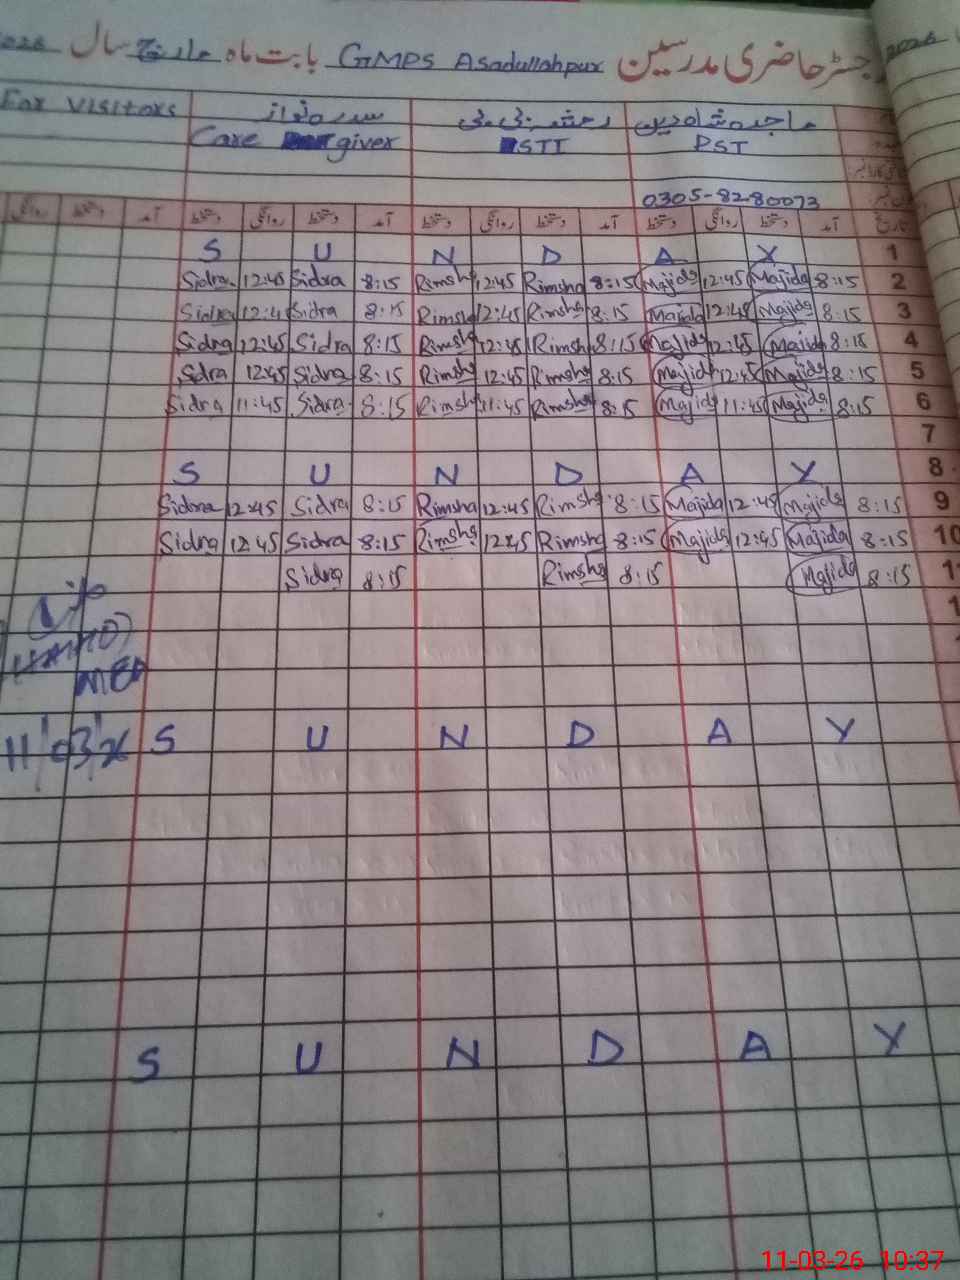 رجسٹر حاضری مدرسین GMPS Asadullahpur بابت ماہ مارچ سال 2026
For Visitors
Care giver STI PST
0305-8280073
تاریخ آمد دستخط روانگی دستخط آمد دستخط روانگی دستخط آمد دستخط روانگی دستخط آمد دستخط روانگی
S U N D A Y 1
Sidra 12:45 Sidra 8:15 Rimsha 12:45 Rimsha 8:15 Majida 12:45 Majida 8:15 2
Sidra 12:4 Sidra 8:15 Rimsha 12:45 Rimsha 8:15 Majida 12:45 Majida 8:15 3
Sidra 12:45 Sidra 8:15 Rimsha 12:45 Rimsha 8:15 Majida 12:45 Majida 8:15 4
Sdra 12:45 Sidra 8:15 Rimsha 12:45 Rimsha 8:15 Majida 12:45 Majida 8:15 5
Sidra 11:45 Sidra 8:15 Rimsha 11:45 Rimsha 8:15 Majida 11:45 Majida 8:15 6
7
S U N D A Y 8
Sidra 12:45 Sidra 8:15 Rimsha 12:45 Rimsha 8:15 Majida 12:45 Majida 8:15 9
Sidra 12:45 Sidra 8:15 Rimsha 12:45 Rimsha 8:15 Majida 12:45 Majida 8:15 10
Sidra 8:15 Rimsha 8:15 Majida 8:15
MEA
11/03/26 S U N D A Y
S U N D A Y
11-03-26 10:37